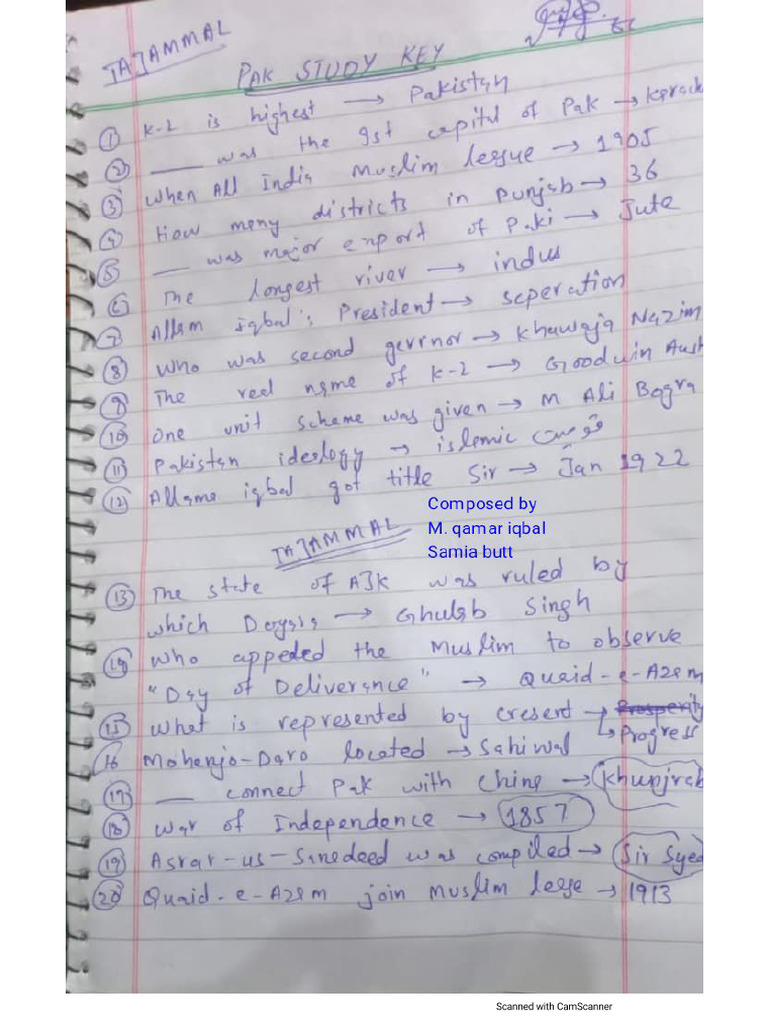 TAJAMMAL
PAK STUDY KEY
① K-2 is highest → Pakistan
② ___ was the 9st capital of Pak → Karach
③ When All India Muslim leegue → 1905
④ How meny districts in Punjab → 36
⑤ ___ was major export of Paki → Jute
⑥ The longest river → indus
⑦ Allam iqbal's President → seperation
⑧ Who was second gevrnor → Khawaja Nazim
⑨ The reel name of K-2 → Goodwin Aust
⑩ One unit scheme was given → M Ali Bogra
⑪ Pakistan ideology → islemic قومیت
⑫ Allame iqbal got title Sir → Jan 1922
Composed by
M. qamar iqbal
Samia butt
TAJAMMAL
⑬ The state of AJK was ruled by
which → Ghulab Singh
⑭ Who appeded the Muslim to observe
"Day of Deliverance" → Quaid-e-Azam
⑮ What is represented by cresent → Prosperity
↳ Progress
16 Mohenjo-Daro located → Sahiwal
⑰ ___ connect Pak with Chine → Khunjrab
⑱ War of Independence → 1857
⑲ Asrar-us-Sanedeed was compiled → Sir Syed
⑳ Quaid-e-Azam join Muslim leege → 1913
Scanned with CamScanner